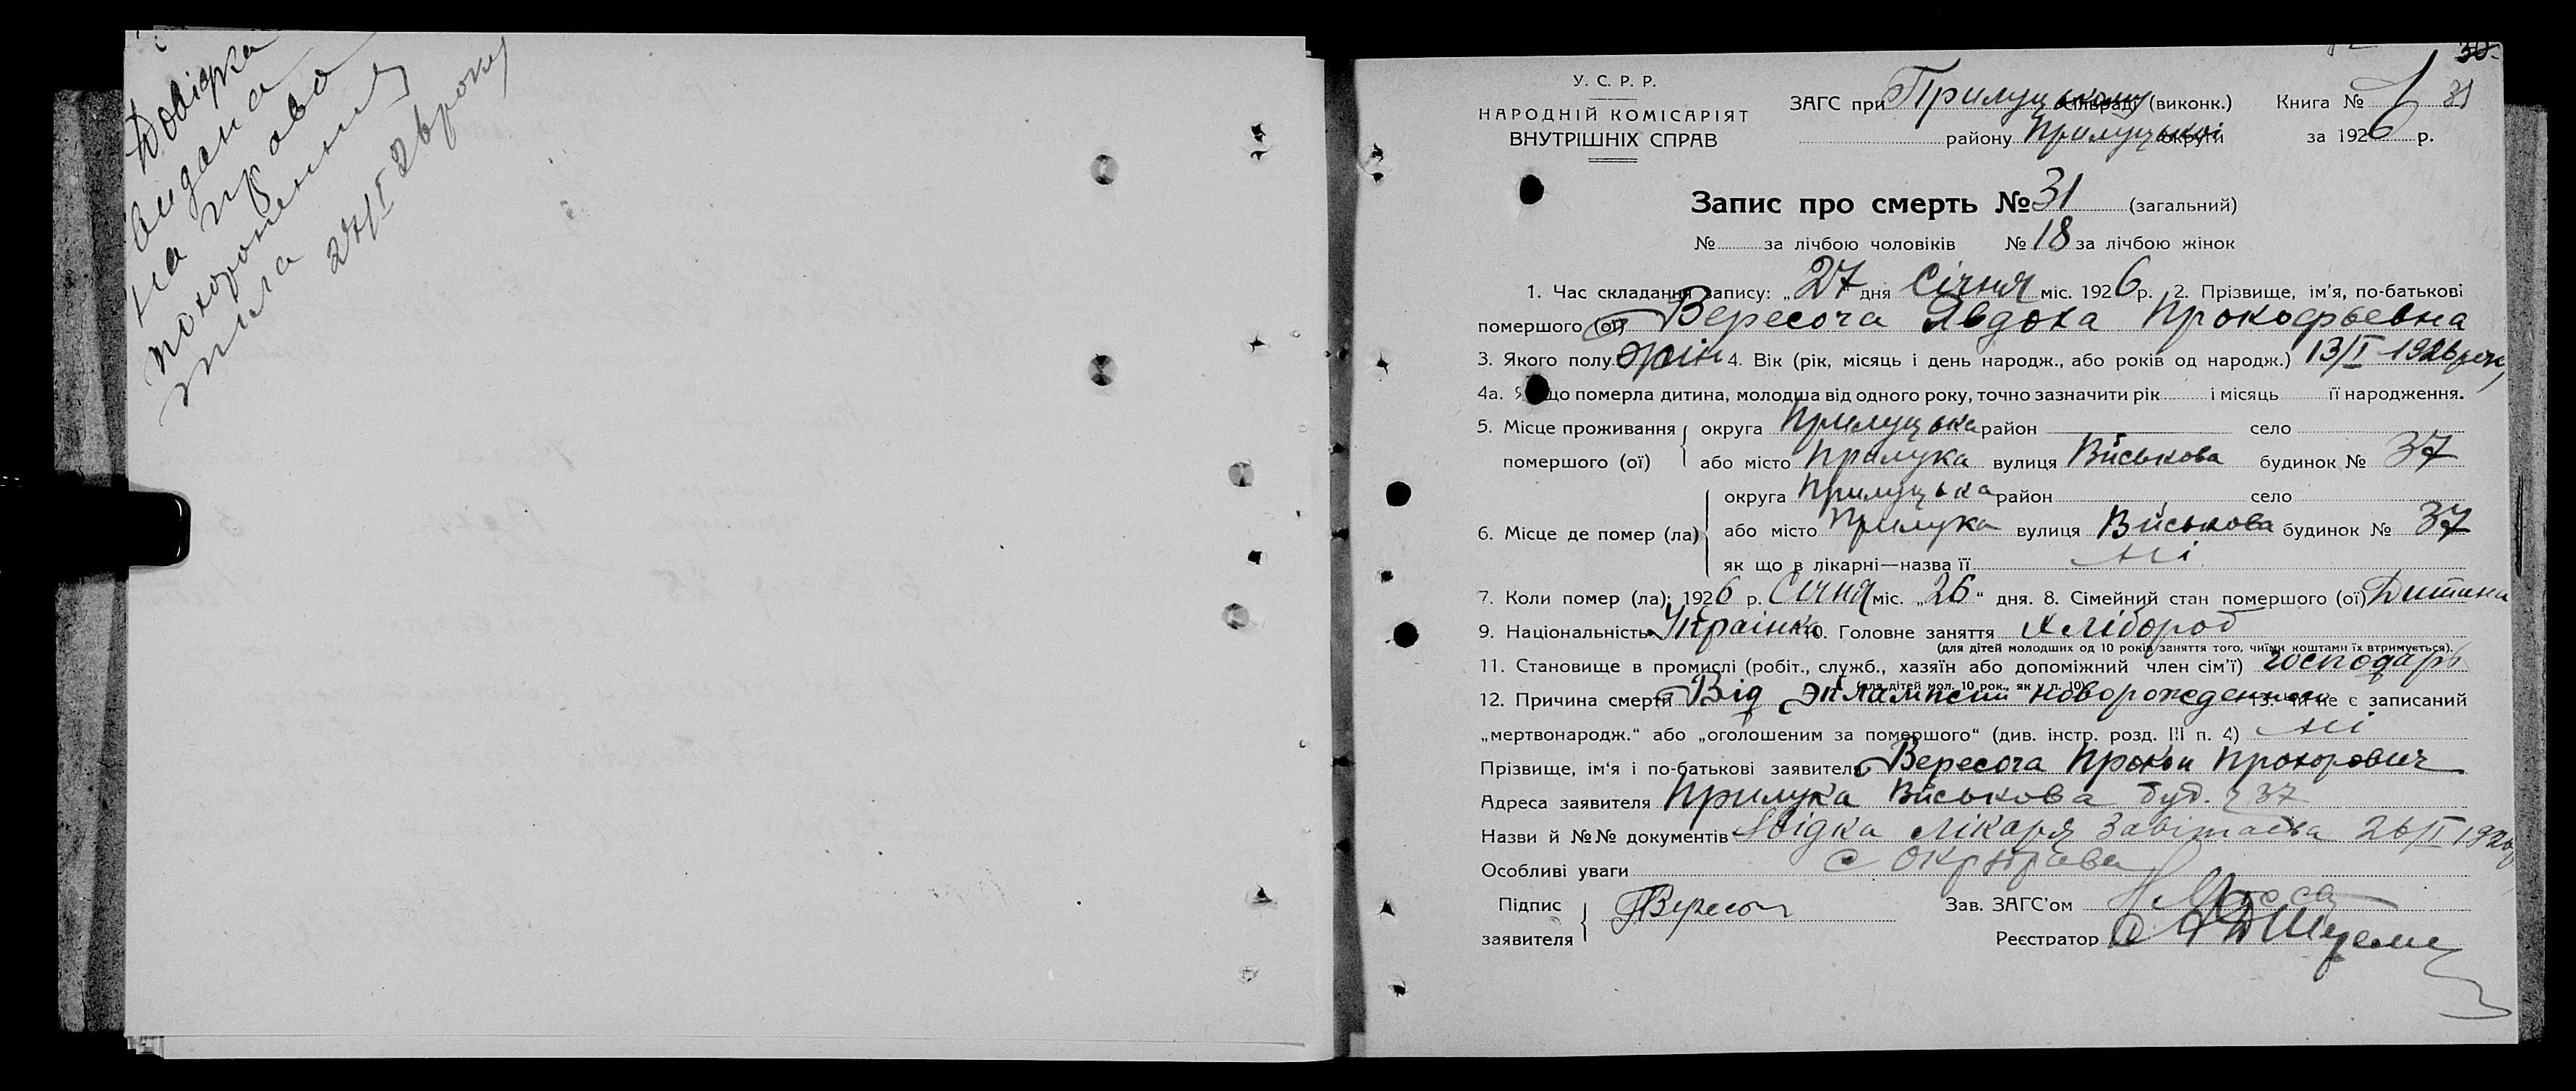 Довідка
видана
на право
похоронення
тила 27/I 26 року
30.
31
У. С. Р. Р.
НАРОДНІЙ КОМІСАРІЯТ
ВНУТРІШНІХ СПРАВ
ЗАГС при Прилуцькому (виконк.) Книга №
району Прилуцької округи за 1926 р.
Запис про смерть № 31 (загальний)
№ за лічбою чоловіків № 18 за лічбою жінок
1. Час складання запису: „27 дня Січня міс. 1926 р. 2. Прізвище, ім'я, по-батькові
помершого (ої) Вересоча Явдоха Прокофьевна
3. Якого полу жін 4. Вік (рік, місяць і день народж., або років од народж.) 13/I 1926 року
4а. Якщо померла дитина, молодша від одного року, точно зазначити рік і місяць її народження.
5. Місце проживання помершого (ої) округа Прилуцька район село
або місто Прилука вулиця Військова будинок № 37
6. Місце де помер (ла) округа Прилуцька район село
або місто Прилука вулиця Військова будинок № 37
як що в лікарні—назва її ні
7. Коли помер (ла): 1926 р. Січня міс. „26“ дня. 8. Сімейний стан помершого (ої) Дитина
9. Національність Українка 10. Головне заняття Хлібороб
(для дітей молодших од 10 років заняття того, чиїми коштами їх втримується).
11. Становище в промислі (робіт., служб., хазяїн або допоміжний член сім'ї) господарь
(для дітей мол. 10 рок., як у п. 10)
12. Причина смерти Від эклампсии новорожденного 13. Чи не є записаний
„мертвонародж.“ або „оголошеним за помершого“ (див. інстр. розд. III п. 4) ні
Прізвище, ім'я і по-батькові заявителя Вересоча Прокоп Прохорович
Адреса заявителя Прилука Військова буд. 37
Назви й №№ документів лікаря 26/I 1926
Особливі уваги
Підпис заявителя Вересоч
Зав. ЗАГС'ом
Реєстратор